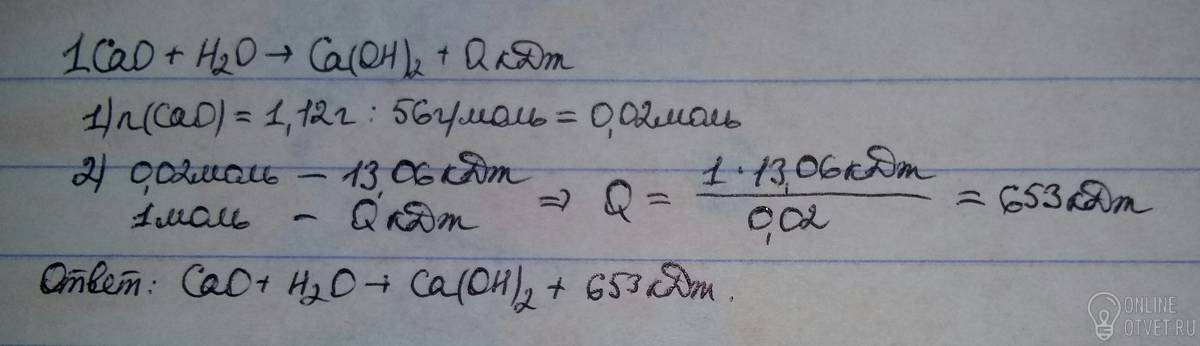 1CaO + H₂O → Ca(OH)₂ + Q кДж
1) n(CaO) = 1,12г : 56г/моль = 0,02моль
2) 0,02моль – 13,06кДж
1моль – Q кДж
⇒ Q = 1·13,06кДж / 0,02 = 653кДж
Ответ: CaO + H₂O → Ca(OH)₂ + 653кДж.
ONLINE
OTVET.RU